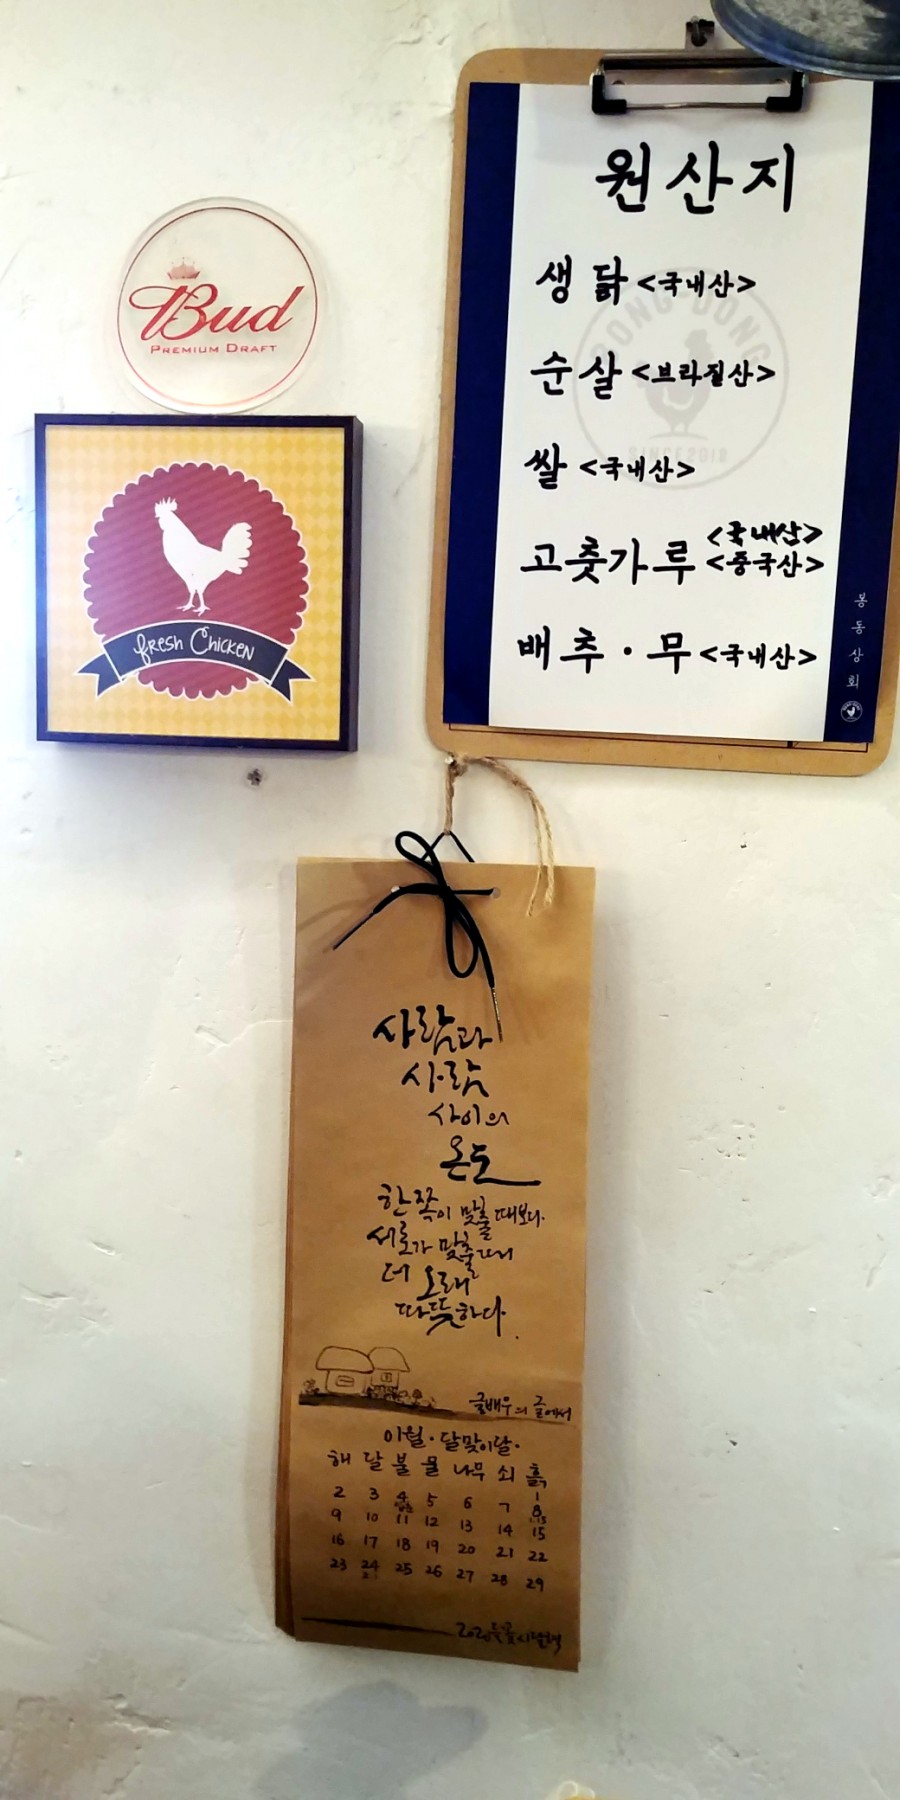 Bud
PREMIUM DRAFT
fresh Chicken
원산지
생닭 <국내산>
순살 <브라질산>
쌀 <국내산>
고춧가루 <국내산>
<중국산>
배추·무 <국내산>
BONG DONG
SINCE 2018
봉동상회
사람과
사람
사이의
온도
한쪽이 맞출 때보다
서로가 맞출 때
더 오래
따뜻하다.
글배우의 글에서
이월·달맞이달·
해 달 불 물 나무 쇠 흙
1
2 3 4 5 6 7 8
입춘
9 10 11 12 13 14 15
16 17 18 19 20 21 22
23 24 25 26 27 28 29
2020